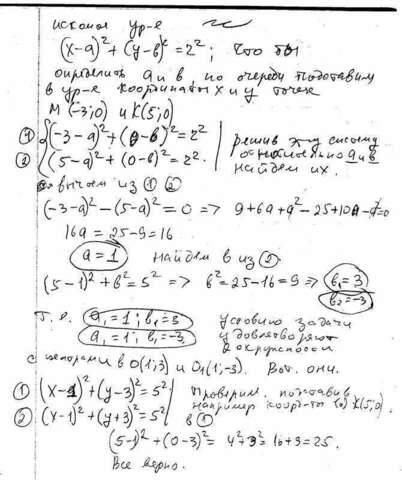 искомое ур-е
(x-a)² + (y-в)² = r²; Что бы
определить a и в, по очереди подставим
в ур-е координаты x и y точек
M (-3;0) и K(5;0)
① (-3-a)² + (0-в)² = r²
② (5-a)² + (0-в)² = r².
решив эту систему
относительно a и в
найдем их.
вычтем из ① ②
(-3-a)² - (5-a)² = 0 => 9+6a+a² - 25+10a - a²=0
16a = 25-9=16
a = 1 найдем в из ②
(5-1)² + в² = 5² => в² = 25-16 = 9 => в₁ = 3
в₂ = -3
Т. о. a₁ = 1; в₁ = 3
a₁ = 1; в₁ = -3
условию задачи
удовлетворяют
2 окружности
с центрами в O(1;3) и O₁(1;-3). Вот они.
① (x-1)² + (y-3)² = 5²
② (x-1)² + (y+3)² = 5²
Проверим, подставив
например коорд-ты K(5,0)
в ①
(5-1)² + (0-3)² = 4²+3² = 16+9 = 25.
Все верно.